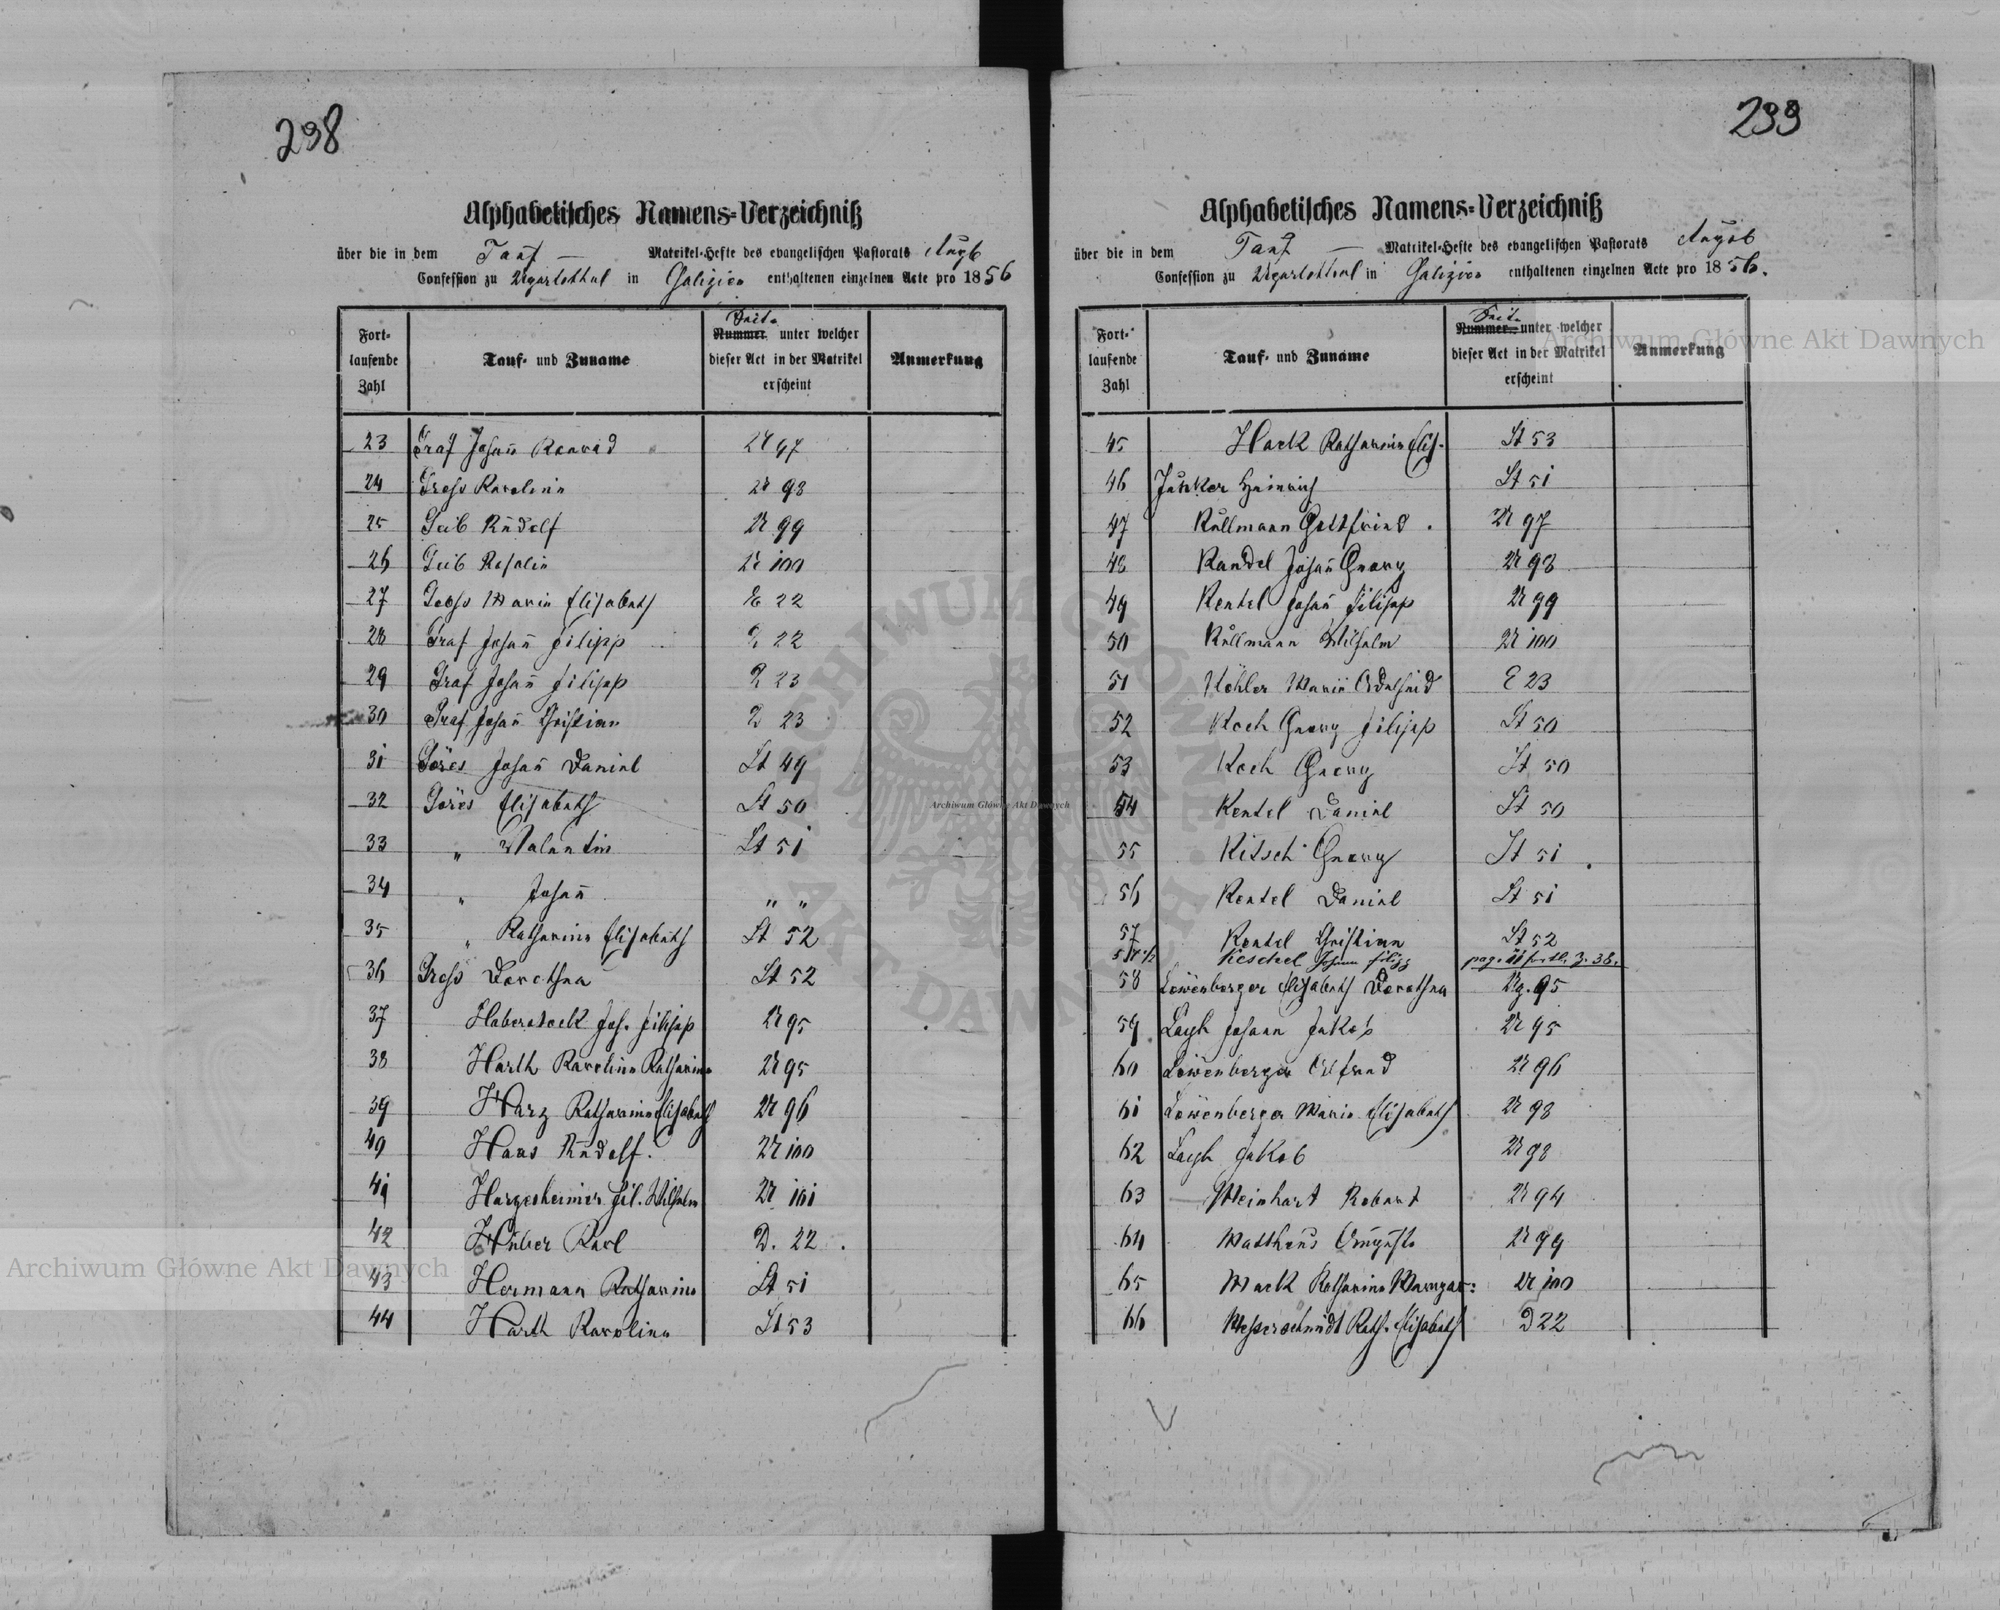 238
Alphabetisches Namens-Verzeichniß
über die in dem Tauf — Matrikel-Hefte des evangelischen Pastorats Augb
Confession zu Ugartsthal in Galizien enthaltenen einzelnen Acte pro 1856
Fortlaufende Zahl
Tauf- und Zuname
Seite
Nummer unter welcher dieser Act in der Matrikel erscheint
Anmerkung
23 Graf Johann Konrad U 97
24 Gress Karolina U 98
25 Geib Rudolf U 99
26 Geib Rosalia U 100
27 Maria Elisabeth E 22
28 Graf Johann Filipp 22
29 Graf Johann Filipp 23
30 Graf Johann Christian 23
31 Göres Johann Daniel St 49
32 Göres Elisabeth St 50
33 " Valentin St 51
34 " Johann " "
35 " Katharina Elisabeth St 52
36 Gress Dorothea St 52
37 Haberstock Joh. Filipp U 95
38 Harth Karolina Katharina U 95
39 Harz Katharina Elisabeth U 96
40 Haas Rudolf. U 100
41 Hargesheimer Fil. Wilhelm U 101
42 Huber Karl D. 22
43 Hermann Katharina St 51
44 Harth Karolina St 53
239
Alphabetisches Namens-Verzeichniß
über die in dem Tauf — Matrikel-Hefte des evangelischen Pastorats Augsb
Confession zu Ugartsthal in Galizien enthaltenen einzelnen Acte pro 1856.
Fortlaufende Zahl
Tauf- und Zuname
Seite
Nummer unter welcher dieser Act in der Matrikel erscheint
Anmerkung
45 Hack Katharina Elis. St 53
46 Junker Heinrich St 51
47 Kullmann Gottfried U 97
48 Kandel Johann Georg U 98
49 Kentel Johann Filipp U 99
50 Kullmann Wilhelm U 100
51 Köhler Maria Adelheid E 23
52 Koch Georg Filipp St 50
53 Koch Georg St 50
54 Kentel Daniel St 50
55 Kitsch Georg St 51
56 Kentel Daniel St 51
57 Kentel Christian St 52
57 1/2 Keschel Johann Filipp pag. 11 fortl. Z. 38.
58 Löwenberger Elisabeth Dorothea Ug. 95
59 Johann Jakob U 95
60 Löwenberger U 96
61 Löwenberger Maria Elisabeth U 98
62 Jakob U 98
63 Meinhart Robert U 94
64 Mattheus Auguste U 99
65 Mack Katharina Margar: U 100
66 Messerschmidt Kath. Elisabeth D 22
Archiwum Główne Akt Dawnych
Archiwum Główne Akt Dawnych
Archiwum Główne Akt Dawnych
ARCHIWUM GŁÓWNE AKT DAWNYCH